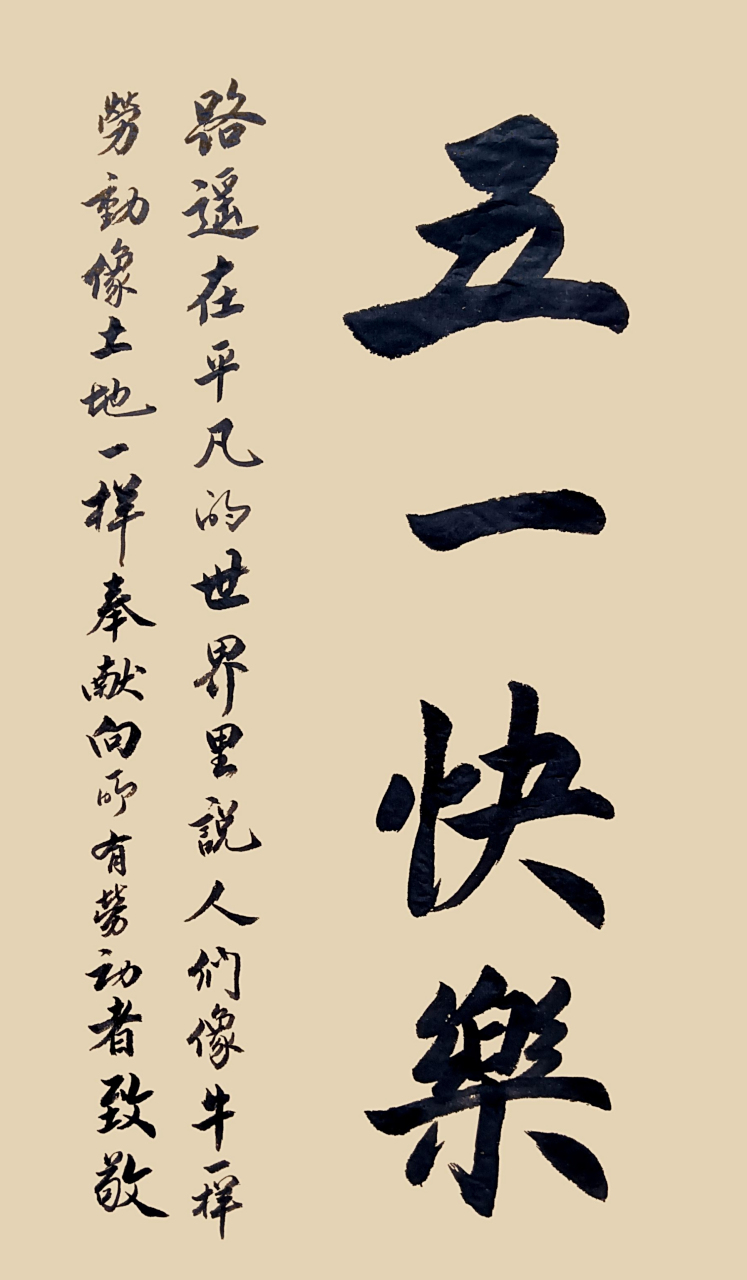 五一快樂
路遥在平凡的世界里説人们像牛一样
勞動像土地一样奉献向所有勞动者致敬